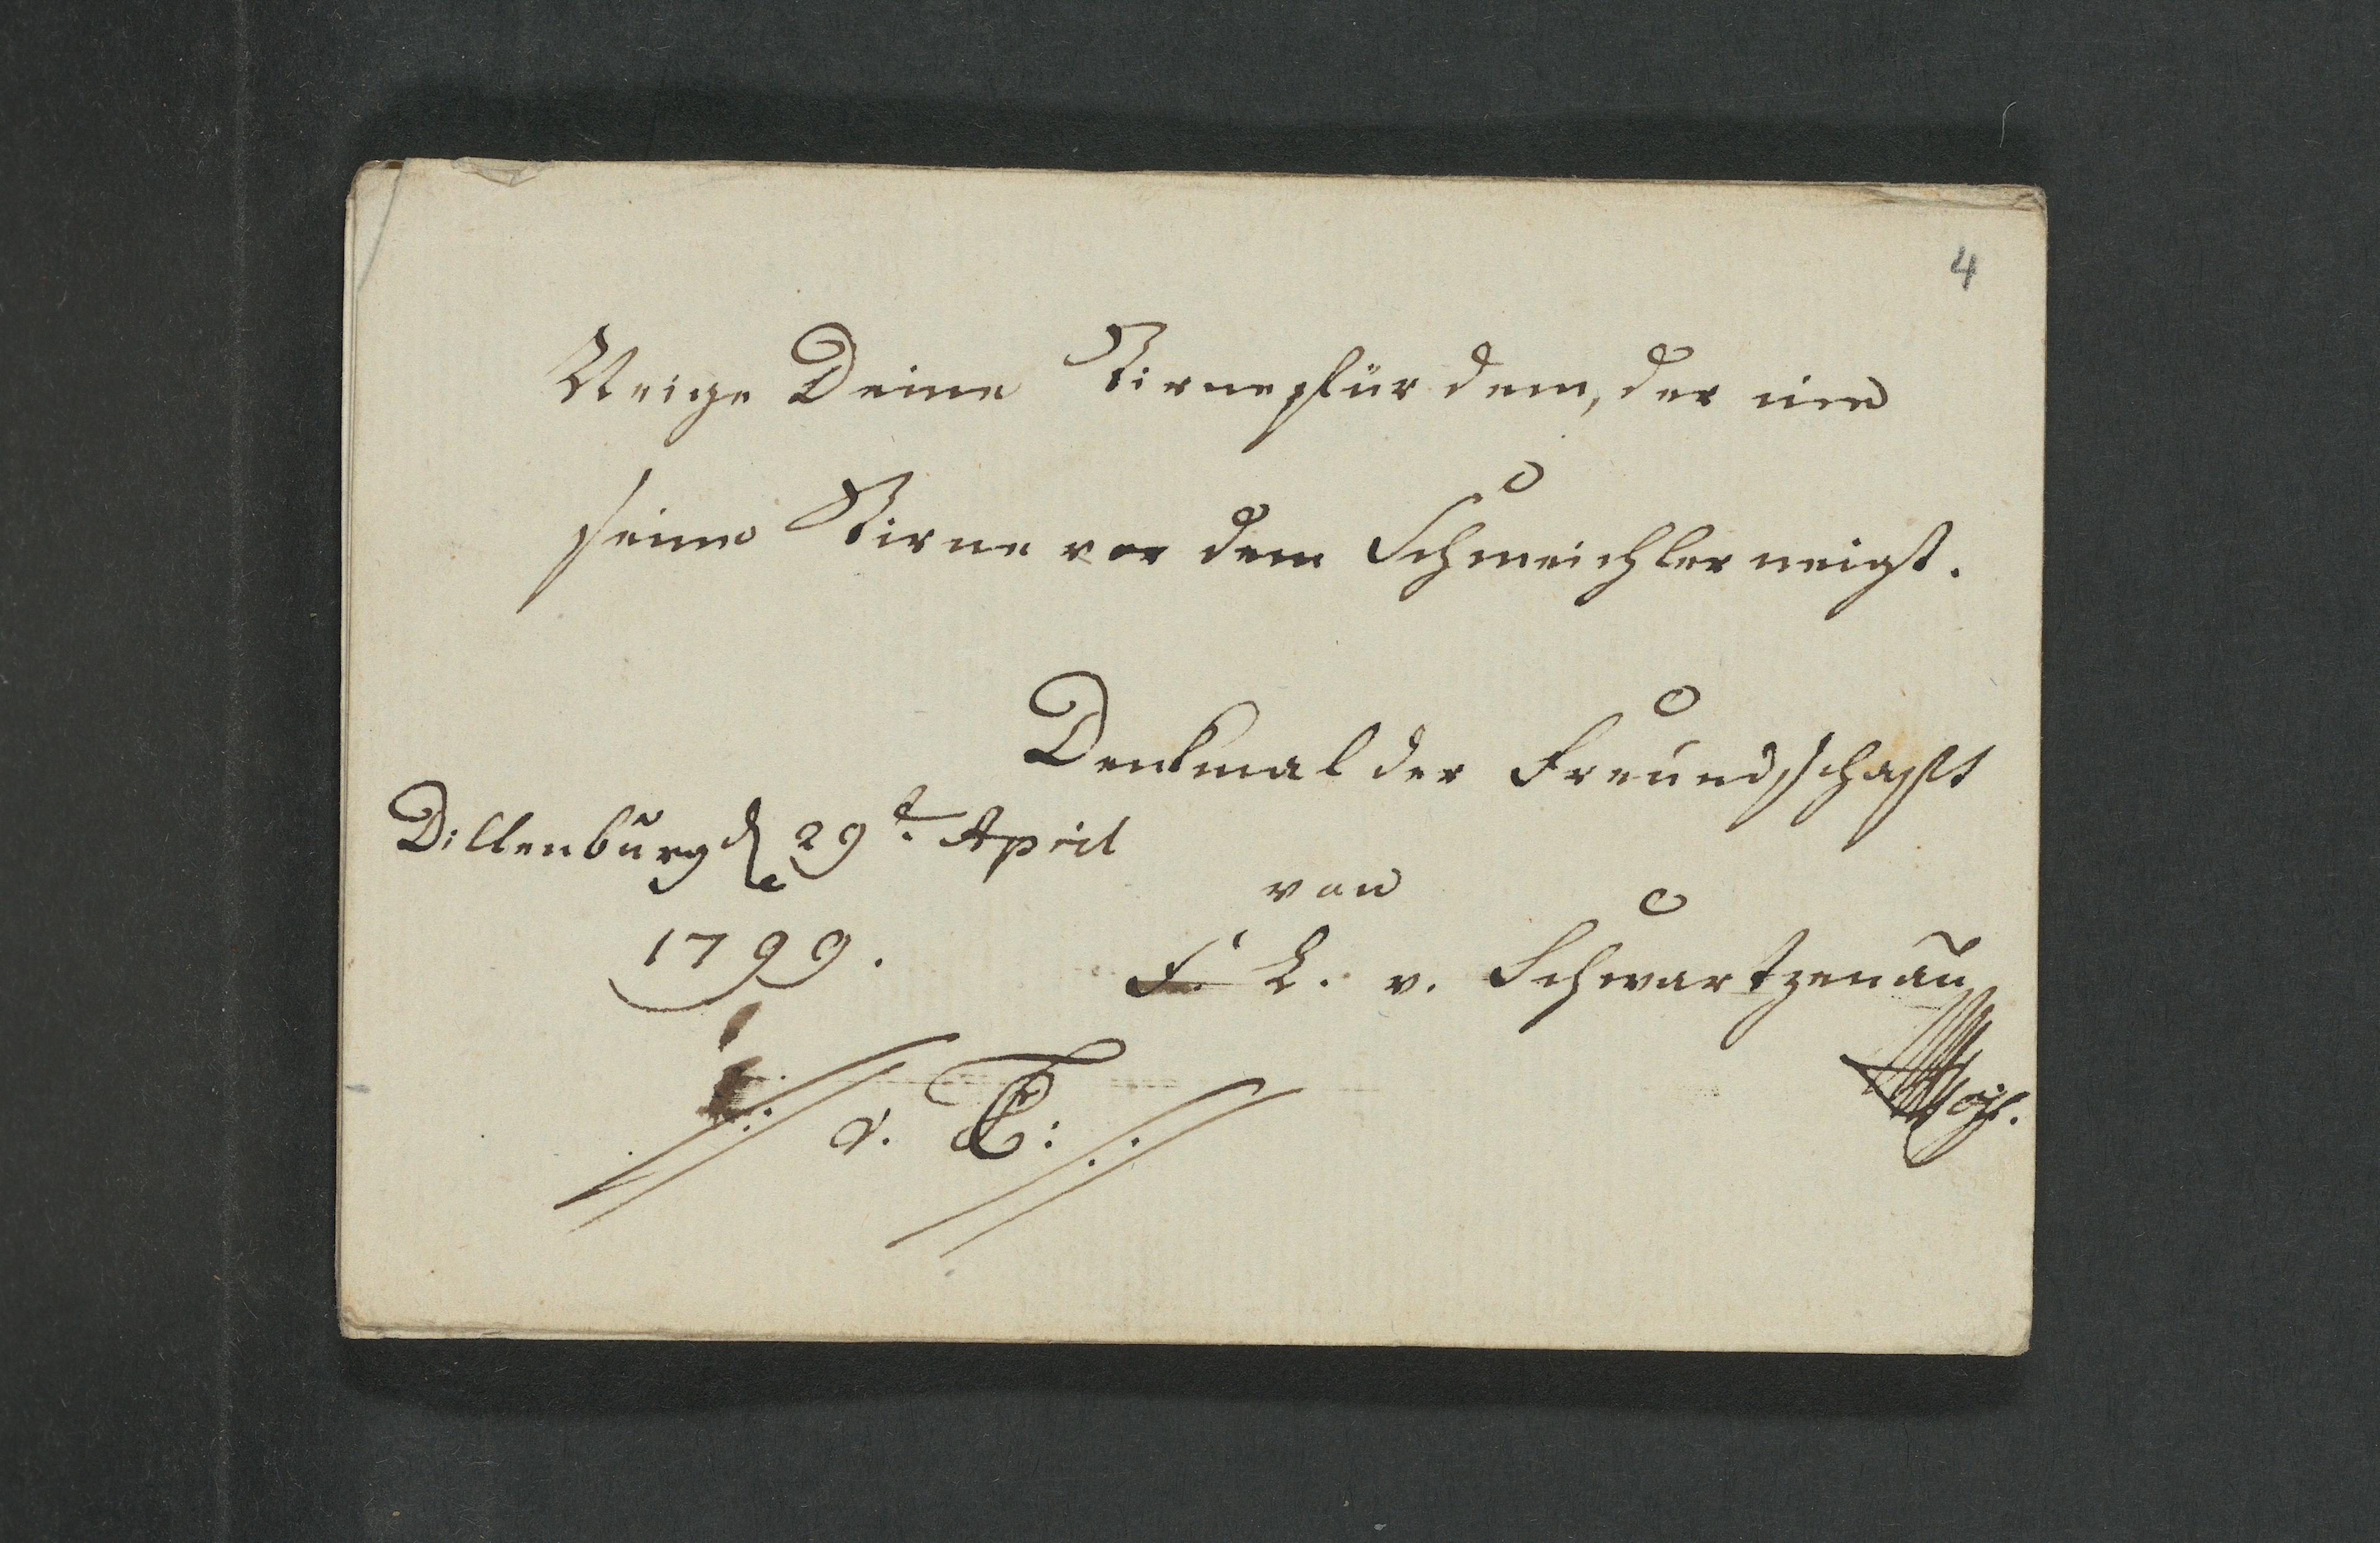 4
Neige Deine Stirne für dem, der nie
seine Stirne vor dem Schmeichler neigt.
Denkmal der Freundschafft
Dillenburg d 29t. April
1799.
von
F. L. v. Schwartzenau